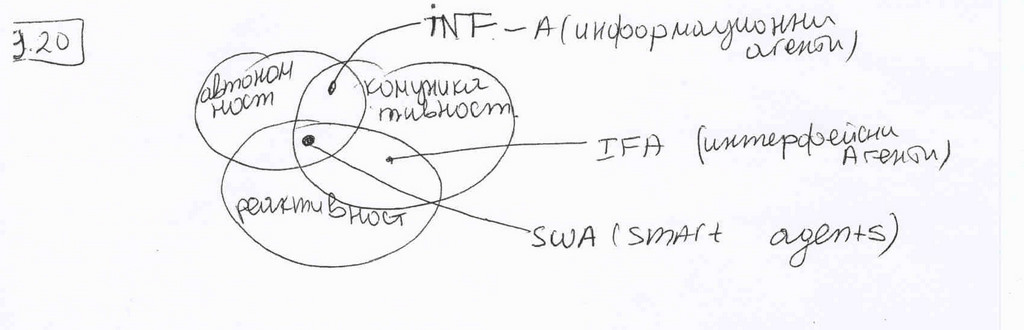 3.20
INF - А (информационни
агенти)
автоном
ност
комуника
тивност
IFA (интерфейсни
Агенти)
реактивност
SWA (smart agents)